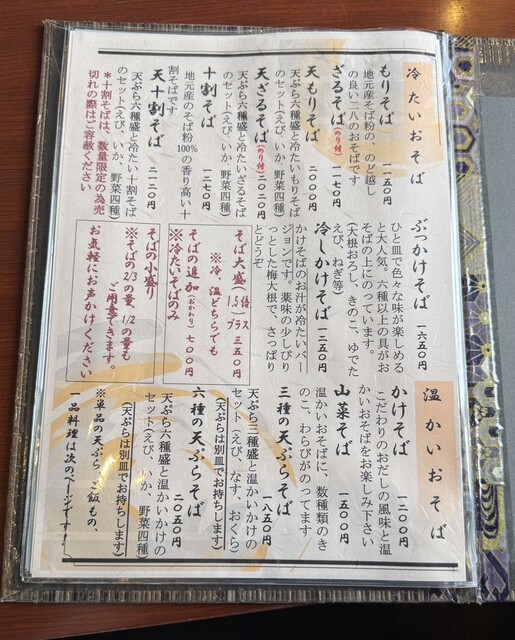 冷たいおそば
もりそば 一一五〇円
地元産そば粉の、のど越し
の良い二八のおそばです
ざるそば(のり付) 一一七〇円
天もりそば 二〇〇〇円
天ぷら六種盛と冷たいもりそば
のセット(えび、いか、野菜四種)
天ざるそば(のり付) 二〇二〇円
天ぷら六種盛と冷たいざるそば
のセット(えび、いか、野菜四種)
十割そば 一二七〇円
地元産のそば粉100%の香り高い十
割そばです
天十割そば 二一二〇円
天ぷら六種盛と冷たい十割そば
のセット(えび、いか、野菜四種)
*十割そばは、数量限定の為売
切れの際はご容赦ください
ぶっかけそば 一六五〇円
ひと皿で色々な味が楽しめる
と大人気。六種以上の具がお
そばの上にのっています。
(大根おろし、きのこ、ゆでた
えび、ねぎ等)
冷しかけそば 一二五〇円
かけそばのお汁が冷たいバー
ジョンです。薬味の少しぴり
っとした梅大根で、さっぱり
とどうぞ
そば大盛(1,5倍)プラス 三五〇円
※冷、温どちらでも
そばの追加(おかわり) 七〇〇円
※冷たいそばのみ
そばの小盛り
※そばの2/3の量、1/2の量も
ご用意できます。
お気軽にお声かけください
温かいおそば
かけそば 一二〇〇円
こだわりのおだしの風味と温
かいおそばをお楽しみ下さい
山菜そば 一五〇〇円
温かいおそばに、数種類のき
のこ、わらびがのってます
三種の天ぷらそば 一八五〇円
天ぷら三種盛と温かいかけの
セット(えび、なす、おくら)
(天ぷらは別皿でお持ちします)
六種の天ぷらそば 二〇五〇円
天ぷら六種盛と温かいかけの
セット(えび、いか、野菜四種)
(天ぷらは別皿でお持ちします)
※単品の天ぷら、ご飯もの、
一品料理は次のページです!